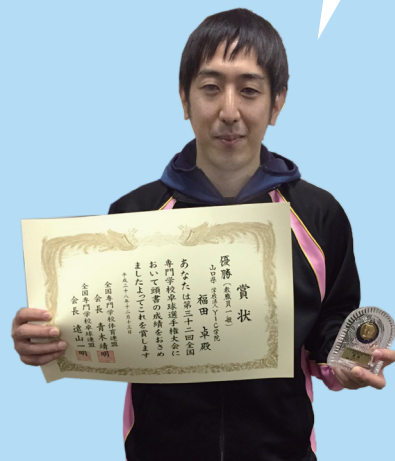 賞状
優勝（教職員一般）
山口県 学校法人YIC学院
福田 卓 殿
あなたは第三十二回全国
専門学校卓球選手権大会に
おいて頭書の成績をおさめ
ましたよってこれを賞します
平成二十八年十二月十三日
全国専門学校体育連盟
会長 青木靖明
全国専門学校卓球連盟
会長 遠山一明